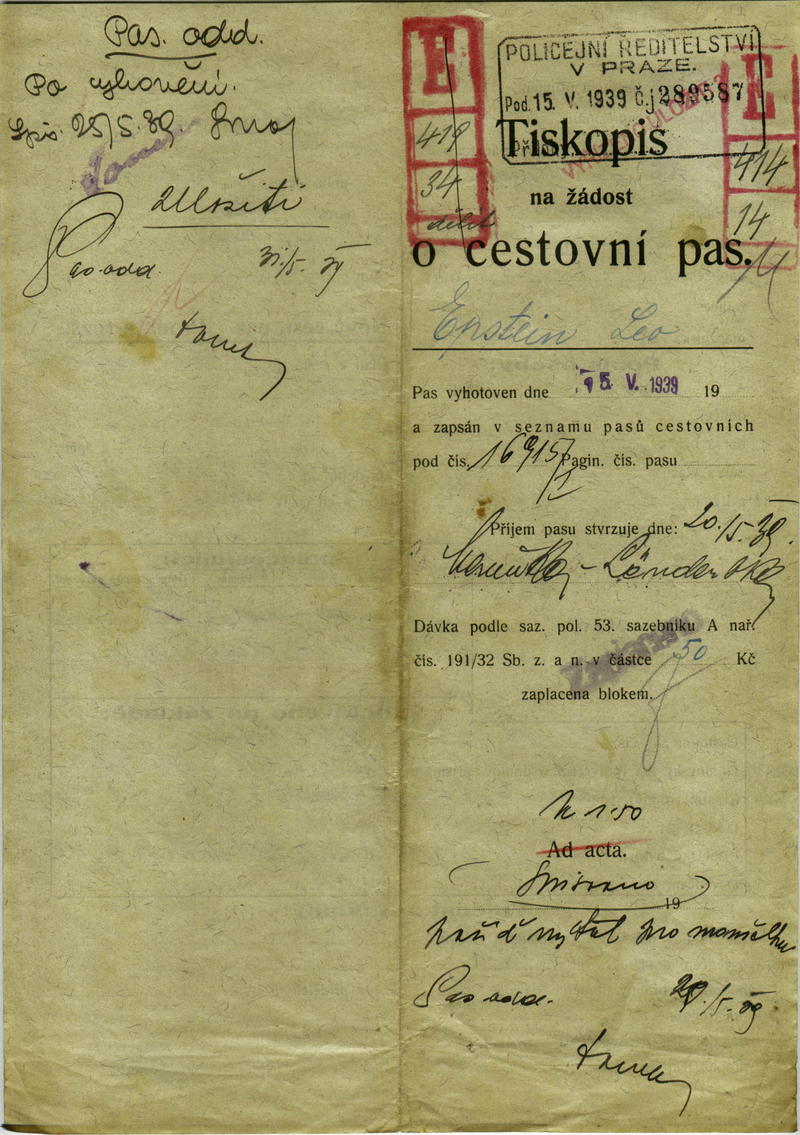 Pas. odd.
Po vyhovění.
25/5.39.
Uložiti
Pas. odd. 31/5. 39
E
419
34
POLICEJNÍ ŘEDITELSTVÍ
V PRAZE.
Pod. 15. V. 1939 Č.j 289587
E
414
14
Tiskopis
na žádost
o cestovní pas.
Epstein Leo
Pas vyhotoven dne 15. V. 1939 19
a zapsán v seznamu pasů cestovních
pod čís. 16915/I Pagin. čís. pasu
Příjem pasu stvrzuje dne: 20./5. 39.
Dávka podle saz. pol. 53. sazebníku A nař.
čís. 191/32 Sb. z. a n. v částce 50 Kč
zaplacena blokem.
Ad acta.
19
pro manželku
Pas. odd. /5. 39